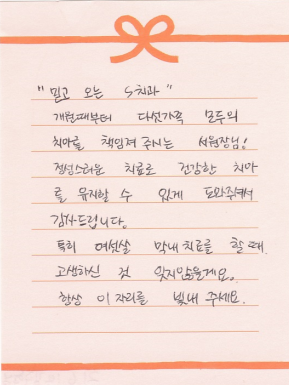 "믿고 오는 S치과"
개원때부터 다섯가족 모두의
치아를 책임져 주시는 서원장님!
정성스러운 치료로 건강한 치아
를 유지할 수 있게 도와주셔서
감사드립니다.
특히 여섯살 막내 치료를 할 때.
고생하신 것 잊지않을게요.
항상 이 자리를 빛내 주세요.